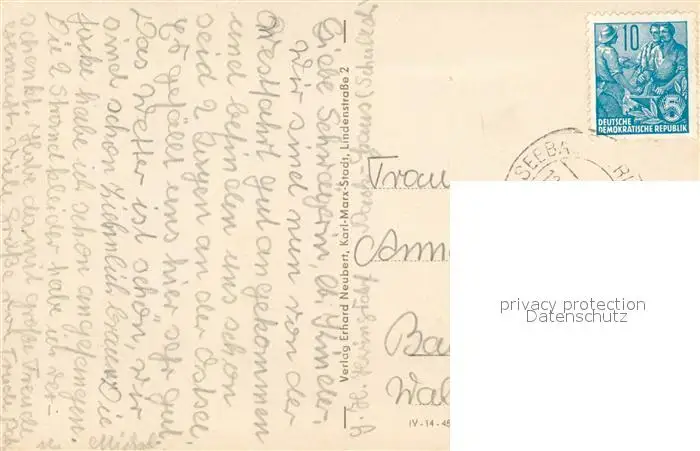 Liebe Schwägerin, l. Kinder.
Wir sind nun von der
Westfahrt gut angekommen
und befinden uns schon
seid 2 Tagen an der Ostsee.
Es gefällt uns hier sehr gut.
Das Wetter ist schön, wir
sind schon ziehmlich braun. Die
Jacke habe ich schon angefangen.
Die 2 Strandkleider habe ich ver-
schenkt. Habe damit große Freude
gemacht. Viele Grüße
Verlag Erhard Neubert, Karl-Marx-Stadt, Lindenstraße 2
10
DEUTSCHE
DEMOKRATISCHE REPUBLIK
5
SEEBA
Frau
Wal
IV-14-45
privacy protection
Datenschutz